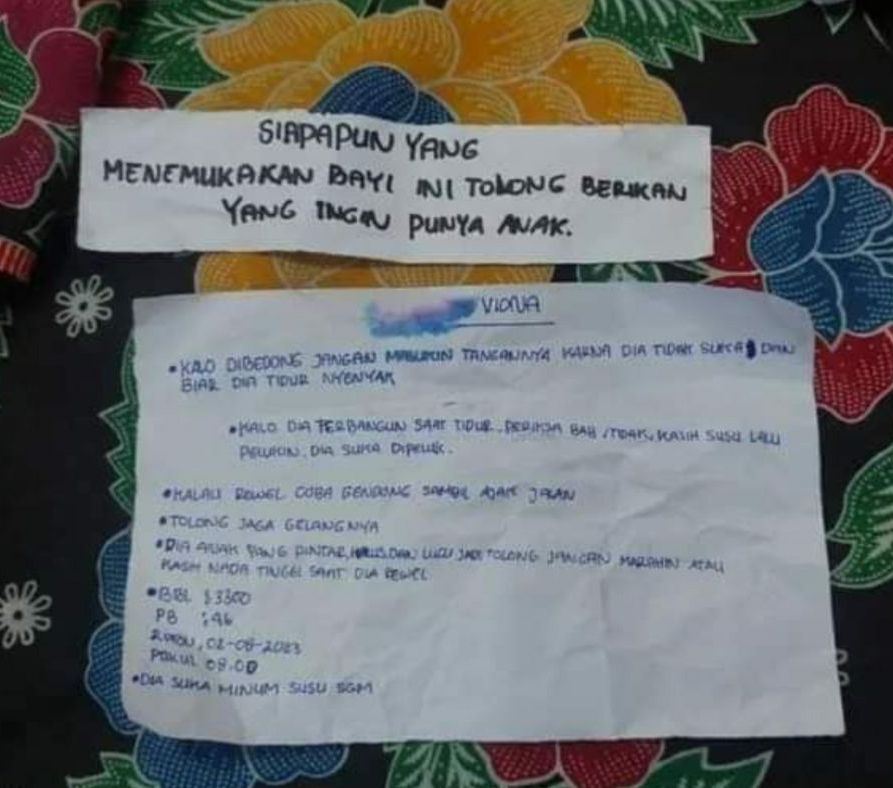 SIAPAPUN YANG
MENEMUKAKAN BAYI INI TOLONG BERIKAN
YANG INGIN PUNYA ANAK.
VIONA
• KALO DIBEDONG JANGAN MASUKIN TANGANNYA KARNA DIA TIDAK SUKA DAN
BIAR DIA TIDUR NYENYAK
• KALO DIA TERBANGUN SAAT TIDUR, PERIKSA BAB /TIDAK, KASIH SUSU LALU
PELUKIN. DIA SUKA DIPELUK.
• KALAU REWEL COBA GENDONG SAMBIL AJAK JALAN
• TOLONG JAGA GELANGNYA
• DIA ANAK YANG PINTAR, DAN LUCU JADI TOLONG JANGAN MARAHIN ATAU
KASIH NADA TINGGI SAAT DIA REWEL
• BBL : 3300
PB : 46
RABU, 02-08-2023
PUKUL 09.00
• DIA SUKA MINUM SUSU SGM